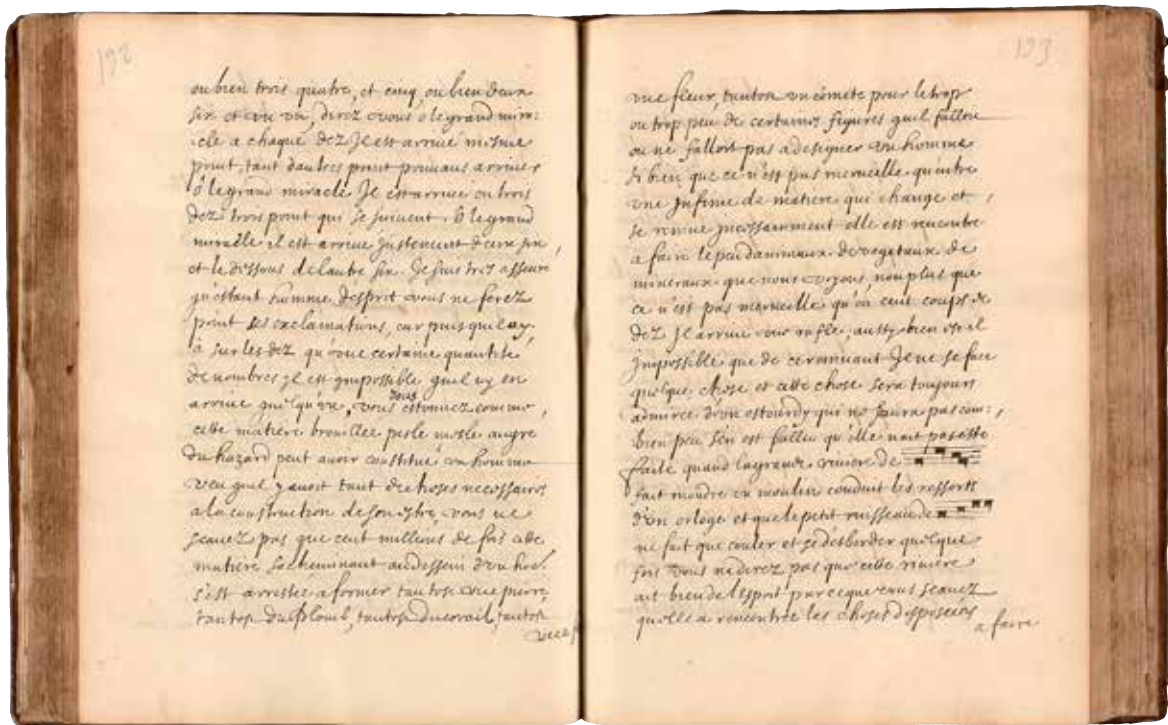 192
ou bien trois quatre, et cinq, ou bien deux
six et un un, direz vous ô le grand mira:
:cle a chaque dez Il est arrivé mesme
point, tant dautres point pouvans arriver
ô le grand miracle Il est arrivé en trois
dez trois point qui se suivent. ô le grand
miracle il est arrivé justement deux six,
et le dessous de lautre six. Je suis tres asseuré
qu'estant homme desprit vous ne ferez
point des exclamations, car puis quil ny
à sur les dez qu'une certaine quantité
de nombres il est ympossible quil ny en
arrive quelqu'un, vous vous estonnez comme,
cette matiere brouillée pesle mesle augre
du hazard peut avoir constitué un homme
veu quil y avoit tant de choses necessaires
a la construction de son estre, vous ne
scavez pas que cent millions de fois cette
matiere s'acheminant au dessein d'un hoe.
s'est arrestée a former tantost une pierre,
tantost du Plomb, tantost du corail, tantost
une f
193
une fleur, tantost un cômete pour le trop
ou trop peu de certaines figures quil falloit
ou ne falloit pas a designer un homme
si bien que ce n'est pas merveille qu'entre
une Infinie de matiere qui change et,
se remue incessamment elle est rencontre
a faire le peu danimaux de vegetaux de
mineraux que nous voyons, non plus que
ce n'est pas merveille qu'en cent coups de
dez Il arrive une rafle; aussy bien est il
Impossible que de ce remuant Il ne se face
quelque chose et cette chose sera toujours
admirée d'un estourdy qui ne scaura pas com:,
bien peu s'en est fallu qu'elle nait pas esté
faite quand la grande riviere de
fait moudre un moulin conduit les ressorts
d'un orloge et que le petit ruisseau de
ne fait que couler et se desborder quelque
fois vous ne direz pas que cette riviere
ait bien de l'esprit parceque vous scavez
quelle a rencontrée les choses disposeés
a faire